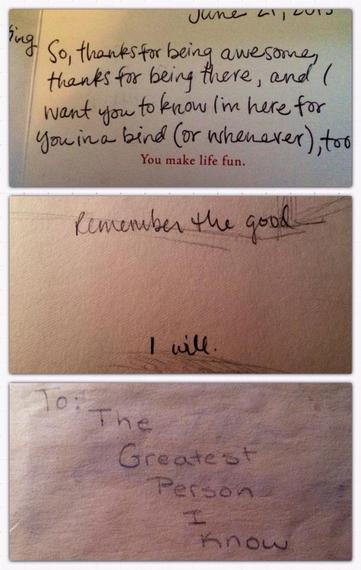 June 21, 2013
So, thanks for being awesome,
thanks for being there, and I
want you to know I'm here for
you in a bind (or whenever), too
You make life fun.
Remember the good
I will.
To:
The
Greatest
Person
I
Know